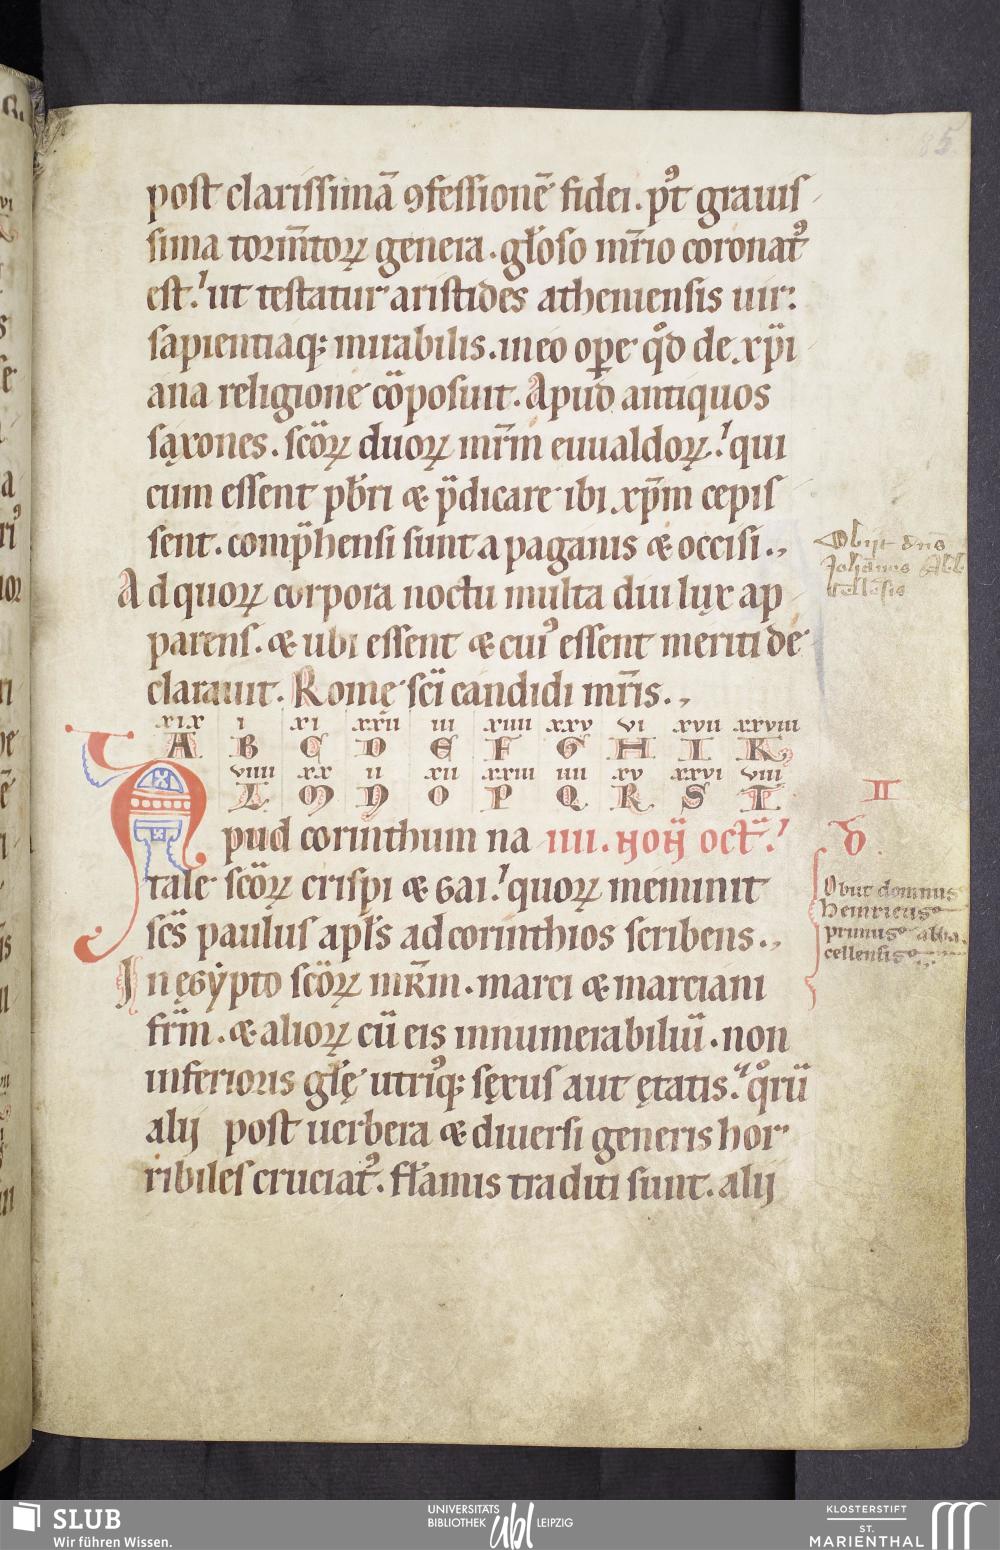 85
post clarissimā ꝯfessionē fidei. pꝰt grauis
sima tormn̄toꝝ genera. gl̄oso mr̄io coronatꝰ
est. ut testatur aristides atheniensis uir
sapientiaqꝫ mirabilis. in eo oꝑe qͦd de xp̄i
ana religione cōposuit. Apud antiquos
saxones. sc̄oꝝ duoꝝ mr̄m euualdoꝝ. qui
cum essent pb̄ri & p̄dicare ibi xp̄m cepis
sent. comp̄hensi sunt a paganis & occisi.
Ad quoꝝ corpora noctu multa diu lux ap
parens. & ubi essent & cuiꝰ essent meriti de
clarauit. Romę sc̄i candidi mr̄is.
xix i xi xxii iii xiiii xxv vi xvii xxviii
A B C D E F G H I K
viiii xx ii xii xxiii iiii xv xxvi viii
L M N O P Q R S T
Apud corinthum na iiii. Non̄ oct̄.
tale sc̄oꝝ crispi & gai. quoꝝ meminit
sc̄s paulus apl̄s ad corinthios scribens.
In egẏpto sc̄oꝝ mr̄m. marci & marciani
fr̄m. & alioꝝ cū eis innumerabiliū. non
inferioris gl̄ę utriꝰqꝫ sęxus aut ętatis. qͦrū
alij post uerbera & diuersi generis hor
ribiles cruciatꝰ. flāmis traditi sunt. alij
Obijt dns̄
Joha͞nes Abb
cellēsis
II
b.
Obiit domnus
Heinricus
primus abba
cellensis
SLUB
Wir führen Wissen.
UNIVERSITÄTS
BIBLIOTHEK ubl LEIPZIG
KLOSTERSTIFT
ST.
MARIENTHAL